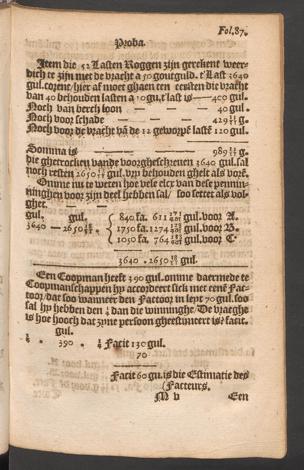 Fol.87.
Proba.
Item die 52 Lasten Roggen zijn gerekent weer-
dich te zijn met de vracht a 70 gout guld. t'Last 3640
gul. coren/hier af moet ghaen ten eersten die vracht
van 40 behouden lasten a 10 gu, t'last is — 400 gul.
Noch van verch loon — — — 40 gul.
Noch voor schade — — 429 g.
Noch voor de vracht vã de 12 geworpẽ lastẽ 120 gul.
Somma is — — 989 g.
die ghetrocken vande voorgheschreven 3640 gul. sal
noch resten 2650 gul. vry behouden ghelt als vorẽ.
Omme nu te weten hoe vele elcx van dese pennin-
ninghen voor zijn deel hebben sal/ soo settet als vol-
ghet.
gul. gul. 840 fa. 611 gul. voor A.
3640 — 2650 1750 fa. 1274 gul. voor B.
1050 fa. 764 gul. voor C.
3640 . 2650 gul.
Een Coopman heeft 390 gul. omme daermede te
Coopmanschappen hy accordeert sich met eenẽ Fac-
toor/dat soo wanneer den Factoor in leyt 70 gul. soo
sal hy hebben den dan die winninghe/De vraeghe
is hoe hooch dat zijne persoon gheestimeert is? facit.
gul.
. 390 . Facit 130 gul.
70
Facit 60 gu. is die Estimatie des
Facteurs.
M v Een